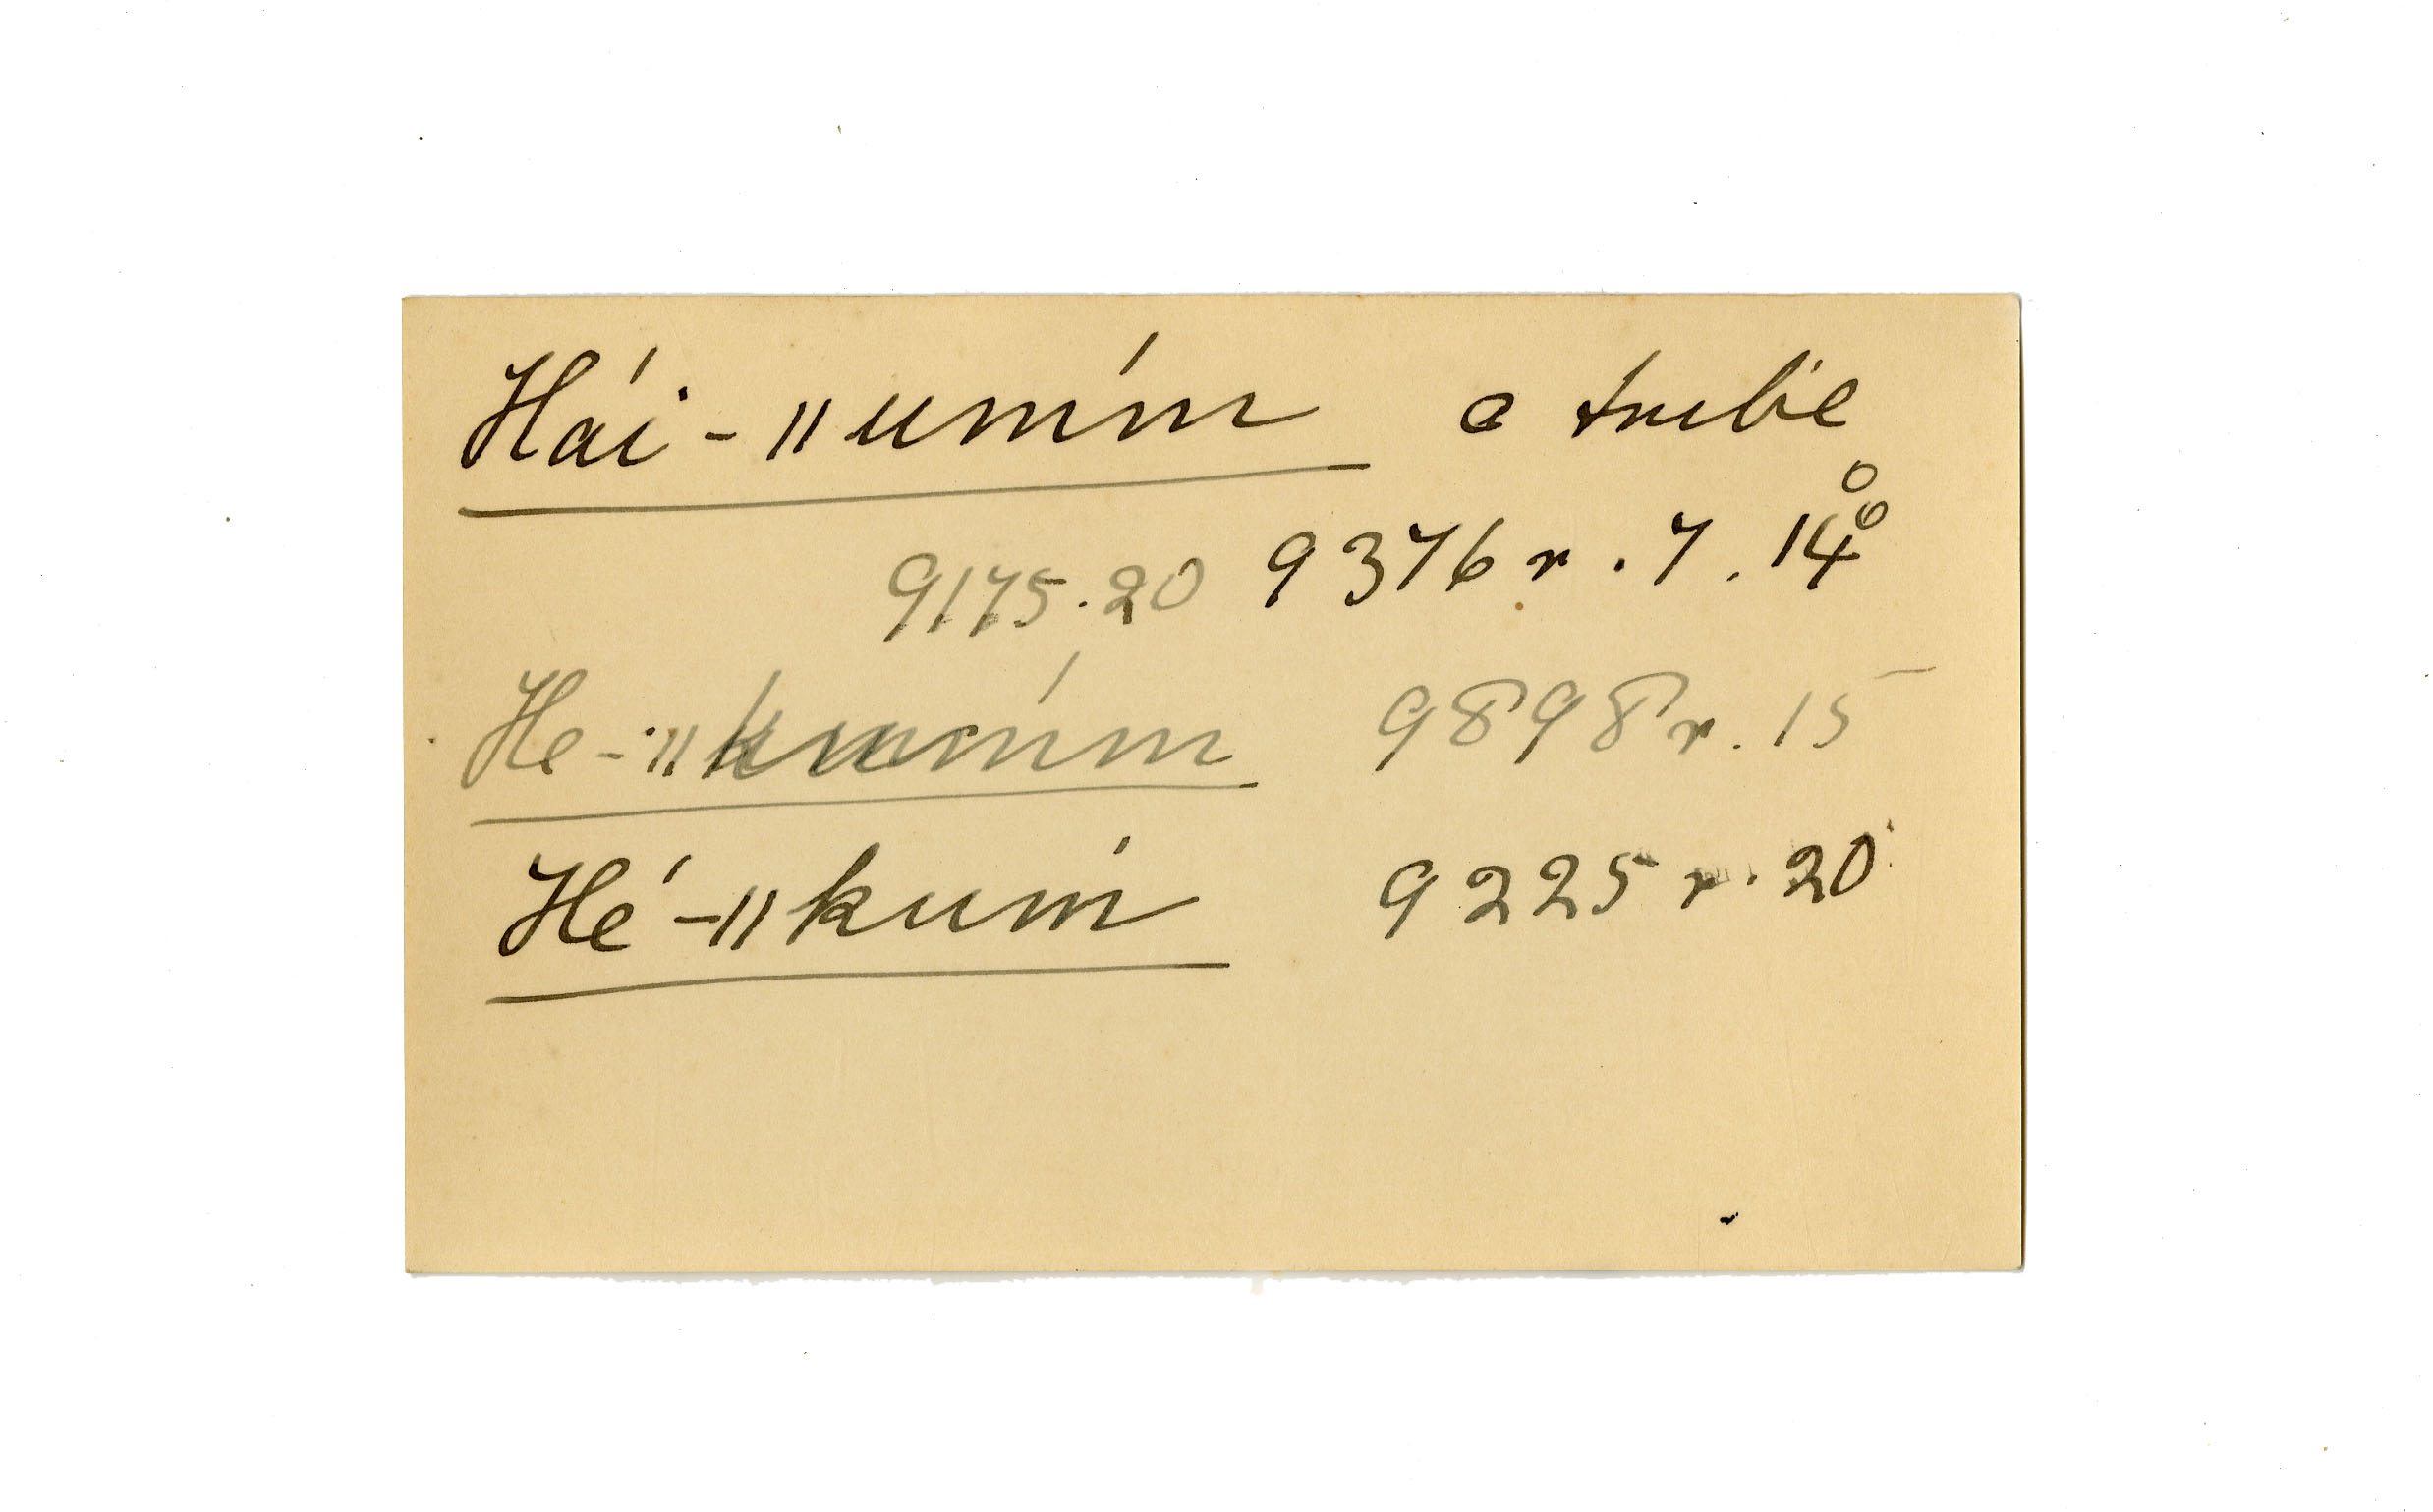 Hái-〃umím a tribe
9175.20 9376 r. 7. 14
He-〃kumím 9898 r. 15
Hé-〃kuḿ 9225 r. 20